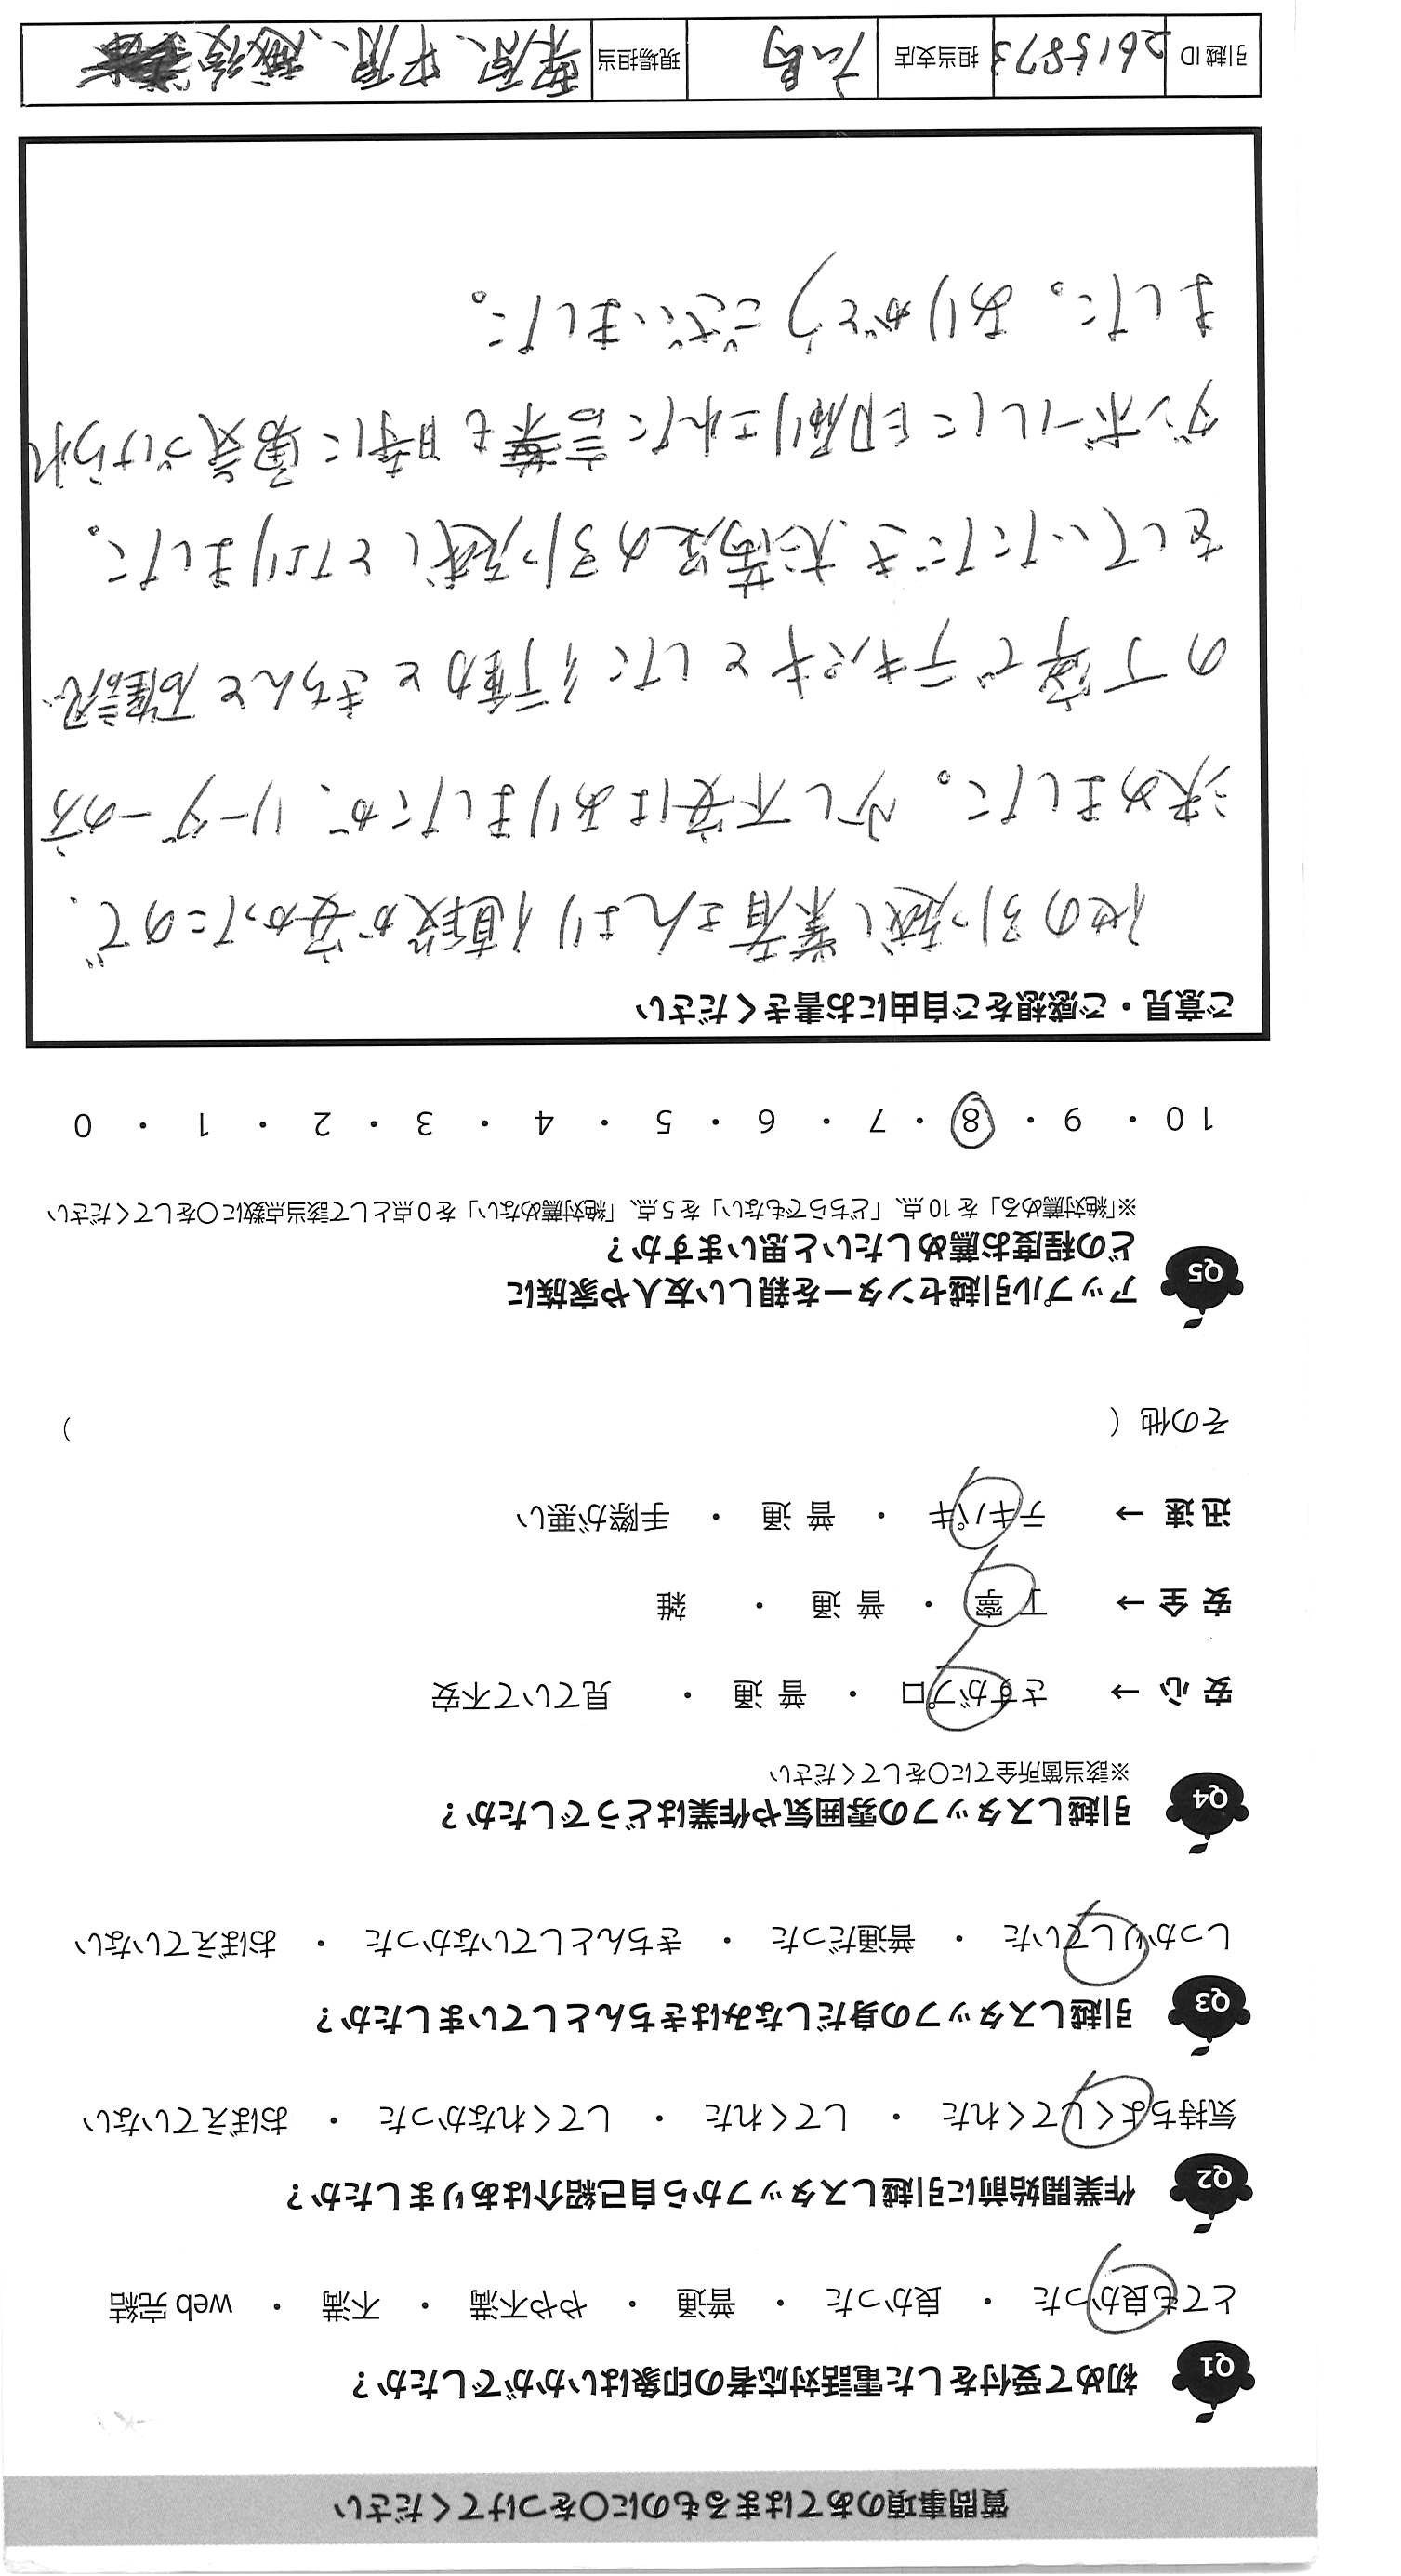 質問事項のあてはまるものに〇をつけてください
Q1 初めて受付をした電話対応者の印象はいかがでしたか？
とても良かった ・ 良かった ・ 普通 ・ やや不満 ・ 不満 ・ web 完結
Q2 作業開始前に引越しスタッフから自己紹介はありましたか？
気持ちよくしてくれた ・ してくれた ・ してくれなかった ・ おぼえていない
Q3 引越しスタッフの身だしなみはきちんとしていましたか？
しっかりしていた ・ 普通だった ・ きちんとしていなかった ・ おぼえていない
Q4 引越しスタッフの雰囲気や作業はどうでしたか？
※該当箇所全てに〇をしてください
安 心 → さすがプロ ・ 普 通 ・ 見ていて不安
安 全 → 丁 寧 ・ 普 通 ・ 雑
迅 速 → テキパキ ・ 普 通 ・ 手際が悪い
その他（ ）
Q5 アップル引越センターを親しい友人や家族に
どの程度お薦めしたいと思いますか？
※「絶対薦める」を 10 点、「どちらでもない」を 5 点、「絶対薦めない」を 0 点として該当点数に〇をしてください
10 ・ 9 ・ 8 ・ 7 ・ 6 ・ 5 ・ 4 ・ 3 ・ 2 ・ 1 ・ 0
ご意見・ご感想をご自由にお書きください
他の引っ越し業者さんより値段が安かったので、
決めました。少し不安はありましたが、リーダーの方
の丁寧でテキパキとした行動ときちんと確認
をしていただき大満足の引っ越しとなりました。
ダンボールに印刷された言葉も時に勇気づけられ
ました。ありがとうございました。
引越 ID 2615873 担当支店 広島 現場担当 栗原、中原、越後